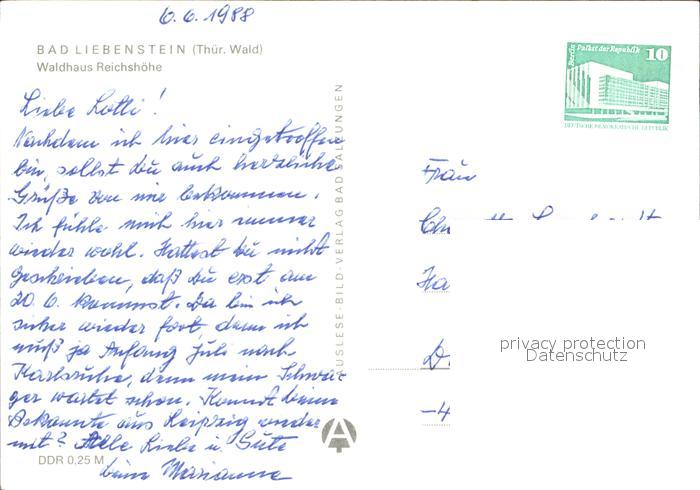 6.6.1988
BAD LIEBENSTEIN (Thür. Wald)
Waldhaus Reichshöhe
Liebe Lotti!
Nachdem ich hier eingetroffen
bin, sollst du auch herzliche
Grüße von mir bekommen.
Ich fühle mich hier immer
wieder wohl. Hattest du nicht
geschrieben, daß du erst am
20. 6. kommst. Da bin ich
sicher wieder fort, denn ich
muß ja Anfang Juli nach
Karlsruhe, denn mein Schwa-
ger wartet schon. Kommt deine
Bekannte aus Leipzig wieder
mit? Alle Liebe u. Gute
deine Marianne
DDR 0,25 M
AUSLESE-BILD-VERLAG BAD SALZUNGEN
Berlin Palast der Republik
10
DEUTSCHE DEMOKRATISCHE REPUBLIK
Frau
Ha
D
-4
privacy protection
Datenschutz